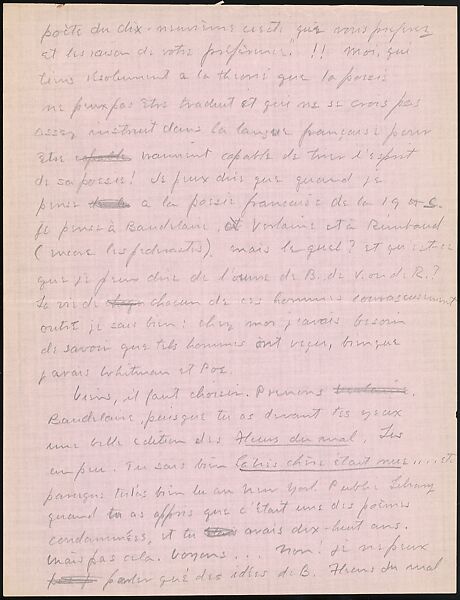 poète du dix-neuvième siècle que vous préferez
et les raison de votre préférence. !! Moi, qui
tiens résolument a la theorie que la poesie
ne peux pas être traduit et qui ne se crois pas
assez instruit dans la langue française pour
être vraiment capable de tirer l'esprit
de sa poésie! Je peux dire que quand je
pense a la poesie française de la 19 e S.
je pense à Baudelaire, et Verlaine et à Rimbaud
(même les pederastes). mais lequel? et qu'est-ce
que je peux dire de l'œuvre de B. de V. ou de R.?
La vie de chacun de ces hommes
oui je sais bien: chez moi j'avais besoin
de savoir que tels hommes ont vécu, bien que
j'avais Whitman et Poe.
Viens, il faut choisir. Prenons
Baudelaire, puisque tu as devant tes yeux
une belle edition des Fleurs du mal. Lis
un peu. Tu sais bien La très chère était nue.... et
parceque tu l'as bien lu au New York Public Library
quand tu as appris que c'était une des poèmes
condamnées, et tu avais dix-huit ans.
Mais pas cela. Voyons... Non! Je ne peux
parler que des idées de B. Fleurs du mal